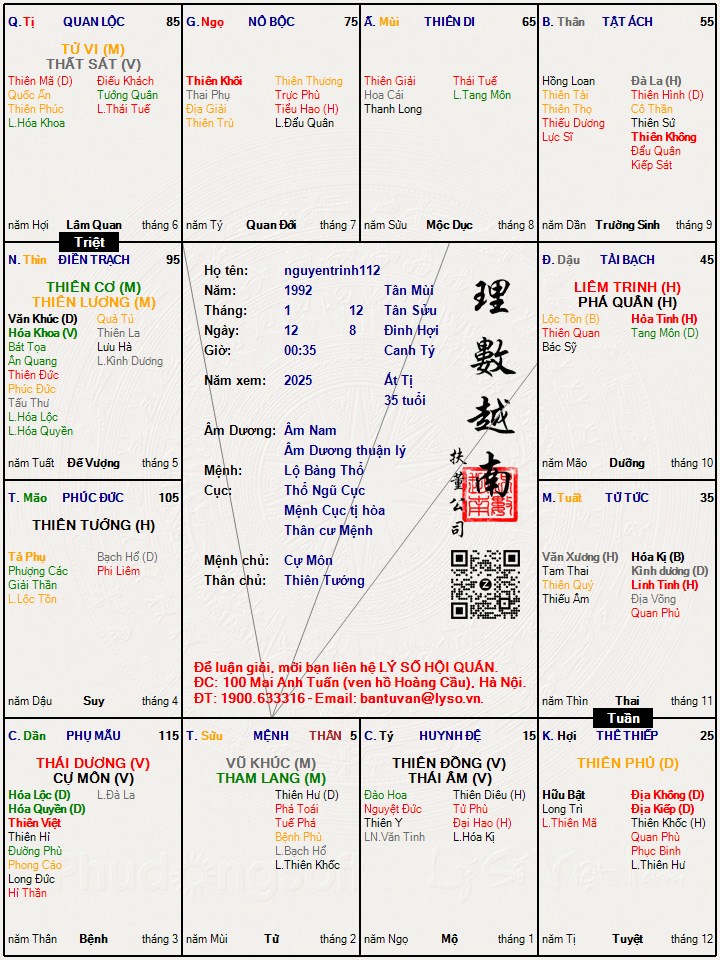 Q. Tị QUAN LỘC 85
TỬ VI (M)
THẤT SÁT (V)
Thiên Mã (D) Điếu Khách
Quốc Ấn Tướng Quân
Thiên Phúc L.Thái Tuế
L.Hóa Khoa
năm Hợi Lâm Quan tháng 6
G. Ngọ NÔ BỘC 75
Thiên Khôi Thiên Thương
Thai Phụ Trực Phù
Địa Giải Tiểu Hao (H)
Thiên Trù L.Đẩu Quân
năm Tý Quan Đới tháng 7
Ấ. Mùi THIÊN DI 65
Thiên Giải Thái Tuế
Hoa Cái L.Tang Môn
Thanh Long
năm Sửu Mộc Dục tháng 8
B. Thân TẬT ÁCH 55
Hồng Loan Đà La (H)
Thiên Tài Thiên Hình (D)
Thiên Thọ Cô Thần
Thiếu Dương Thiên Sứ
Lực Sĩ Thiên Không
Đẩu Quân
Kiếp Sát
năm Dần Trường Sinh tháng 9
Triệt
N. Thìn ĐIỀN TRẠCH 95
THIÊN CƠ (M)
THIÊN LƯƠNG (M)
Văn Khúc (D) Quả Tú
Hóa Khoa (V) Thiên La
Bát Tọa Lưu Hà
Ân Quang L.Kình Dương
Thiên Đức
Phúc Đức
Tấu Thư
L.Hóa Lộc
L.Hóa Quyền
năm Tuất Đế Vượng tháng 5
Họ tên: nguyentrinh112
Năm: 1992 Tân Mùi
Tháng: 1 12 Tân Sửu
Ngày: 12 8 Đinh Hợi
Giờ: 00:35 Canh Tý
Năm xem: 2025 Ất Tị
35 tuổi
Âm Dương: Âm Nam
Âm Dương thuận lý
Mệnh: Lộ Bàng Thổ
Cục: Thổ Ngũ Cục
Mệnh Cục tị hòa
Thân cư Mệnh
Mệnh chủ: Cự Môn
Thân chủ: Thiên Tướng
理數越南
扶董公司
Để luận giải, mời bạn liên hệ LÝ SỐ HỘI QUÁN.
ĐC: 100 Mai Anh Tuấn (ven hồ Hoàng Cầu), Hà Nội.
ĐT: 1900.633316 - Email: bantuvan@lyso.vn.
Đ. Dậu TÀI BẠCH 45
LIÊM TRINH (H)
PHÁ QUÂN (H)
Lộc Tồn (B) Hỏa Tinh (H)
Thiên Quan Tang Môn (D)
Bác Sỹ
năm Mão Dưỡng tháng 10
T. Mão PHÚC ĐỨC 105
THIÊN TƯỚNG (H)
Tả Phụ Bạch Hổ (D)
Phượng Các Phi Liêm
Giải Thần
L.Lộc Tồn
năm Dậu Suy tháng 4
M. Tuất TỬ TỨC 35
Văn Xương (H) Hóa Kị (B)
Tam Thai Kình dương (D)
Thiên Quý Linh Tinh (H)
Thiếu Âm Địa Võng
Quan Phủ
năm Thìn Thai tháng 11
Tuần
C. Dần PHỤ MẪU 115
THÁI DƯƠNG (V)
CỰ MÔN (V)
Hóa Lộc (D) L.Đà La
Hóa Quyền (D)
Thiên Việt
Thiên Hỉ
Đường Phù
Phong Cáo
Long Đức
Hỉ Thần
năm Thân Bệnh tháng 3
T. Sửu MỆNH THÂN 5
VŨ KHÚC (M)
THAM LANG (M)
Thiên Hư (D)
Phá Toái
Tuế Phá
Bệnh Phù
L.Bạch Hổ
L.Thiên Khốc
năm Mùi Tử tháng 2
C. Tý HUYNH ĐỆ 15
THIÊN ĐỒNG (V)
THÁI ÂM (V)
Đào Hoa Thiên Diêu (H)
Nguyệt Đức Tử Phù
Thiên Y Đại Hao (H)
LN.Văn Tinh L.Hóa Kị
năm Ngọ Mộ tháng 1
K. Hợi THÊ THIẾP 25
THIÊN PHỦ (D)
Hữu Bật Địa Không (D)
Long Trì Địa Kiếp (D)
L.Thiên Mã Thiên Khốc (H)
Quan Phù
Phục Binh
L.Thiên Hư
năm Tị Tuyệt tháng 12